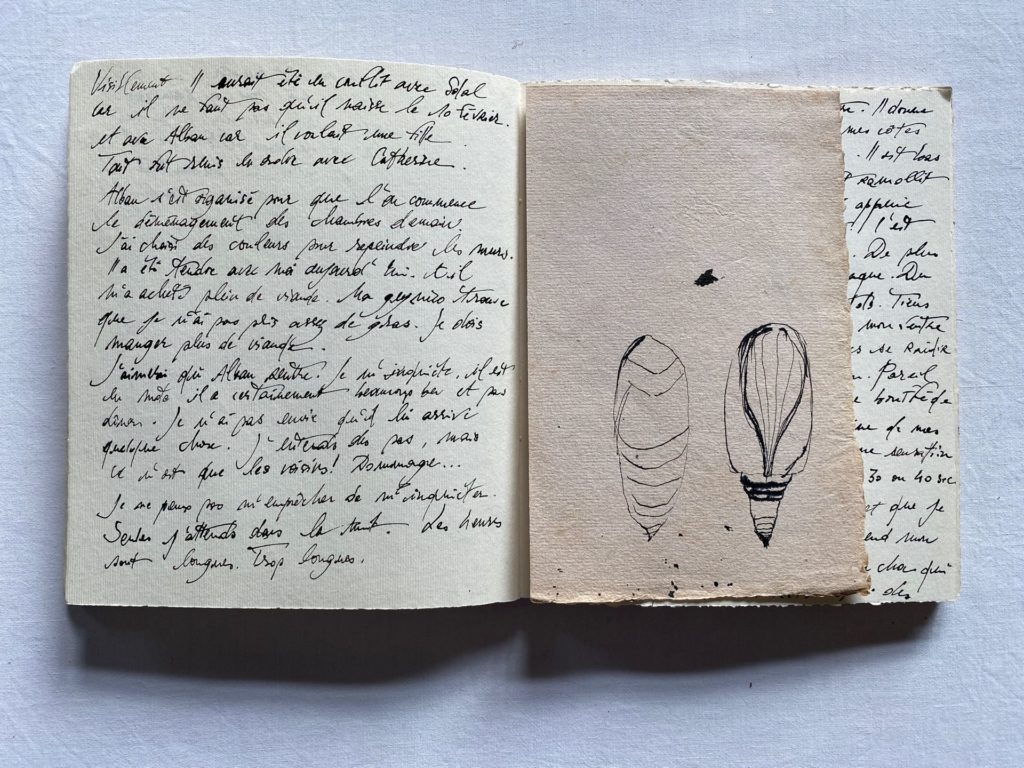 Visiblement Il aurait été en conflit avec
car il ne faut pas qu'il naisse le 10 février.
et avec Alban car il voulait une fille.
Tout fut remis en ordre avec Catherine.
Alban s'est organisé pour que l'on commence
le déménagement des chambres demain.
J'ai choisi des couleurs pour repeindre les murs.
Il a été tendre avec moi aujourd'hui. Et il
m'a acheté plein de viande. Ma gynéco trouve
que je n'ai pas pris assez de gras. Je dois
manger plus de viande.
J'aimerai qu' Alban rentre. Je m'inquiète, il est
en moto il a certainement beaucoup bu et pas
. Je n'ai pas envie qu'il lui arrive
quelque chose. J'entends des pas, mais
ce n'est que les voisins! Dommage...
Je ne peux pas m'empêcher de m'inquiéter.
Seule j'attends dans la nuit. Les heures
sont longues. Trop longues.
Il donne
mes côtes
. Il est bas
ramollit
appuie
! C'est
. De plus
. Tiens
mon ventre
se raidir
. Pareil
de mes
sensation
30 ou 40 sec
que je
mon
qui